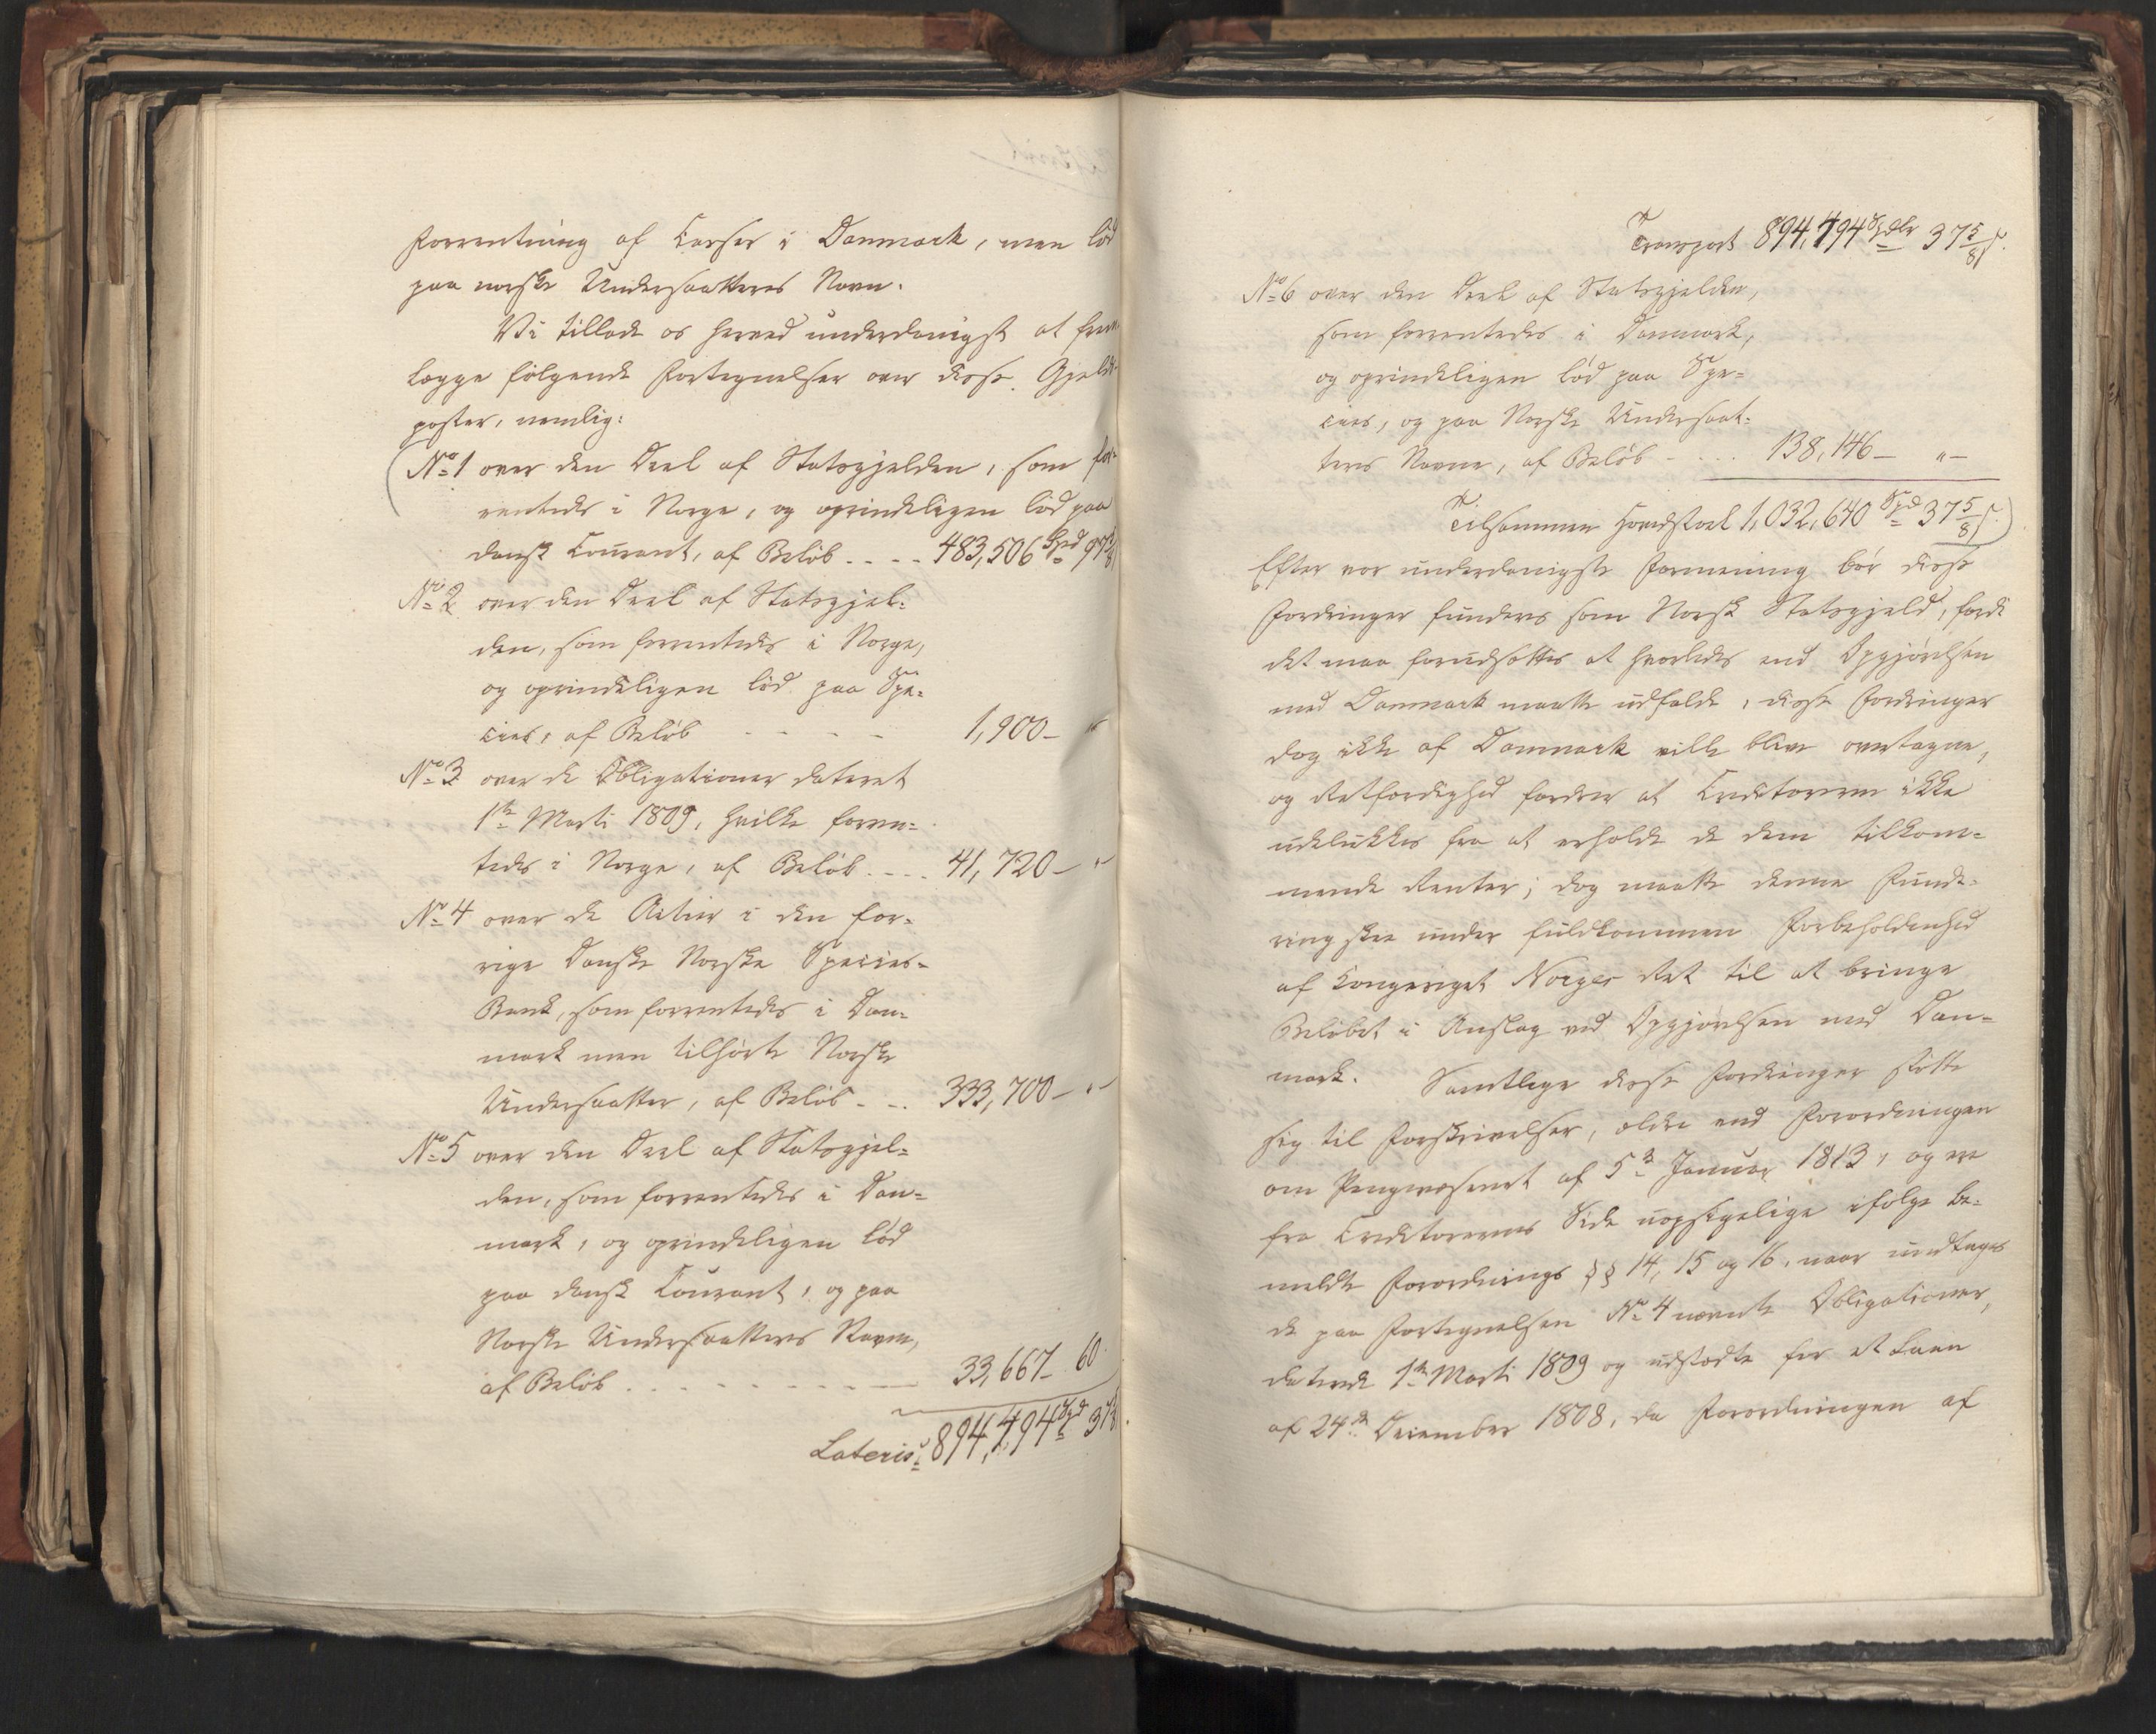 forrentning af Casser i Danmark, men lød
paa norske Undersaatteres Navn.
Vi tillade os herved underdanigst at frem
lægge følgende Fortegnelser over disse Gjelds
poster, nemlig:
No 1 over den Deel af Statsgjelden, som for-
rentedes i Norge, og oprindeligen lød paa
dansk Courant, af Beløb . . . . 483,506 Spd 97
No 2 over den Deel af Statsgjel-
den, som forrentedes i Norge,
og oprindeligen lød paa Spe-
cies, af Beløb - - - - - 1,900 - "
No 3 over de Obligationer dateret
1ste Marti 1809, hvilke forren-
tedes i Norge, af Beløb . . . . 41,720 - "
No 4 over de Actier i den for-
rige Danske Norske Species-
Bank, som forrentedes i Dan-
mark men tilhørte Norske
Undersaatter, af Beløb - . . 333,700 - "
No 5 over den Deel af Statsgjel-
den, som forrentedes i Dan-
mark, og oprindeligen lød
paa dansk Courant, og paa
Norske Undersaatteres Navne,
af Beløb . . . . . . . . 33,667 - 60
Lateris 894,494 Spd 37
Transport 894,494 Spdlr 37 5/8 s.
No 6 over den Deel af Statsgjelden,
som forrentedes i Danmark,
og oprindeligen lød paa Spe-
cies, og paa Norske Undersaat-
teres Navne, af Beløb - . . . 138,146 - " -
Tilsammen Hovedstoel 1,032,640 Spd 37 5/8 s.
Efter vor underdanigste Formening bør disse
Fordringer funderes som Norsk Statsgjeld, fordi
det maa forudsættes at hvorledes end Opgjørelsen
med Danmark maatte udfalde, disse Fordringer
dog ikke af Danmark ville blive overtagne,
og Retfærdighed fordrer at Creditorerne ikke
udelukkes fra at erholde de dem tilkom-
mende Renter; dog maatte denne Funde-
ring skee under fuldkommen Forbeholdenhed
af Kongeriget Norges Ret til at bringe
Beløbet i Anslag ved Opgjørelsen med Dan-
mark. Samtlige disse Fordringer støtte
sig til Forskrivelser, ældre end Forordningen
om Pengevæsenet af 5te Januar 1813, og ere
fra Creditorernes Side uopsigelige ifølge be-
meldte Forordnings §§ 14, 15 og 16, naar undtages
de paa Fortegnelsen No 4 nævnte Obligationer,
daterede 1ste Marti 1809 og udstædte for et Laan
af 24de December 1808, da Forordningen af